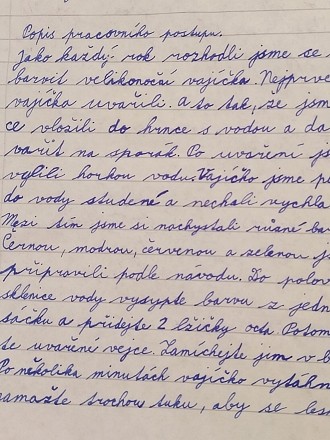 Popis pracovního postupu.
Jako každý rok rozhodli jsme se
barvit velikonoční vajíčka. Nejprve
vajíčka uvařili. a to tak, že jsm
ce vložili do hrnce s vodou a da
vařit na sporák. Po uvaření js
vylili horkou vodu. Vajíčko jsme p
do vody studené a nechali vychla
Mezi tím jsme si nachystali různé bar
Černou, modrou, červenou a zelenou j
připravili podle návodu. Do polov
sklenice vody vysypte barvu z jedn
sáčku a přidejte 2 lžičky octa Potom
te uvaření vejce. Zamíchejte jím v b
Po několika minutách vajíčko vytáhn
namažte trochou tuku, aby se les